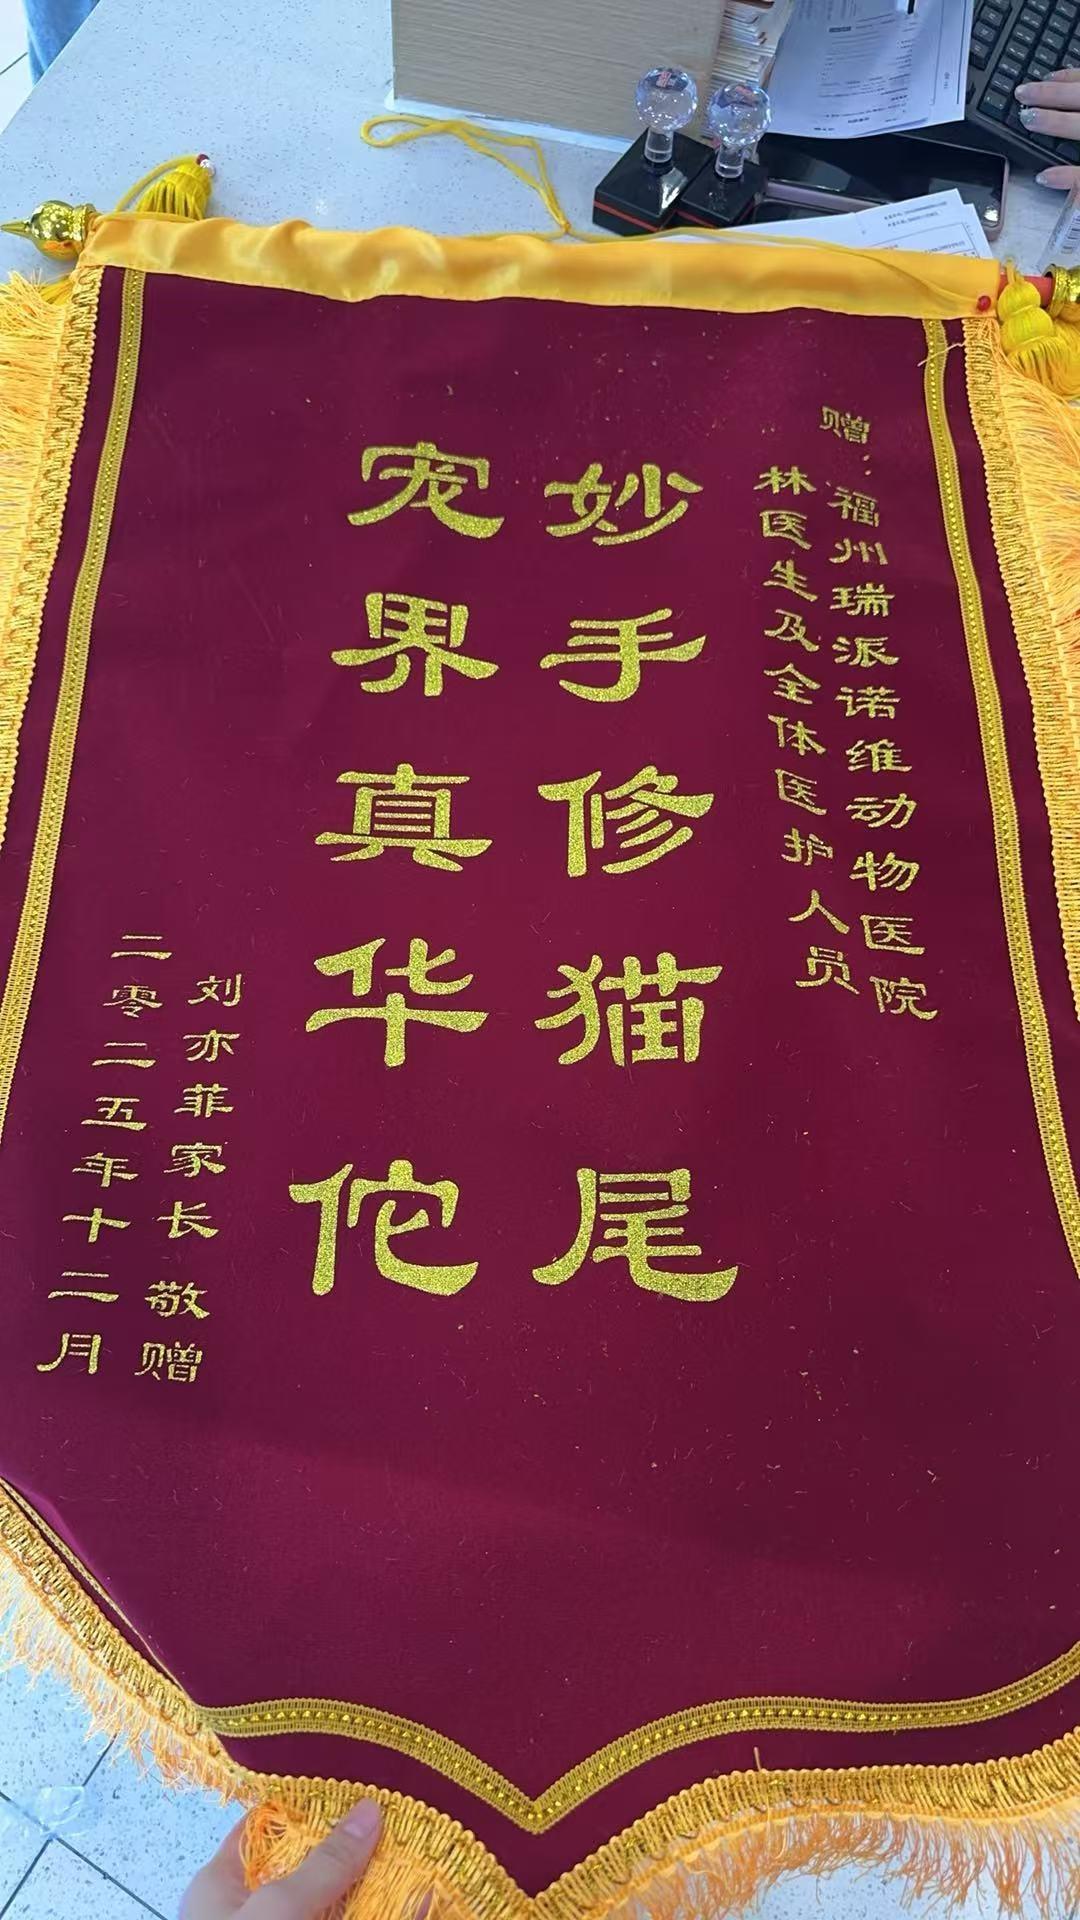 赠：福州瑞派诺维动物医院
林医生及全体医护人员
妙手修猫尾
宠界真华佗
刘亦菲家长 敬赠
二零二五年十二月